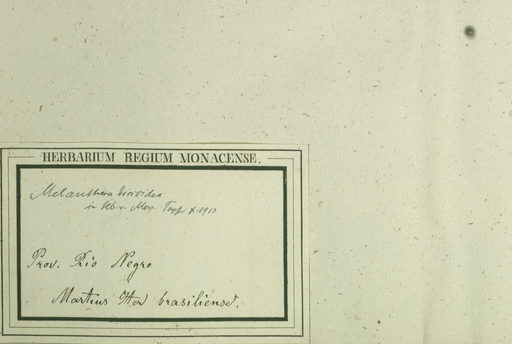 HERBARIUM REGIUM MONACENSE.
Melanthera
in Hb. v. Mon. X 1913
Prov. Rio Negro
Martius Iter brasiliense.